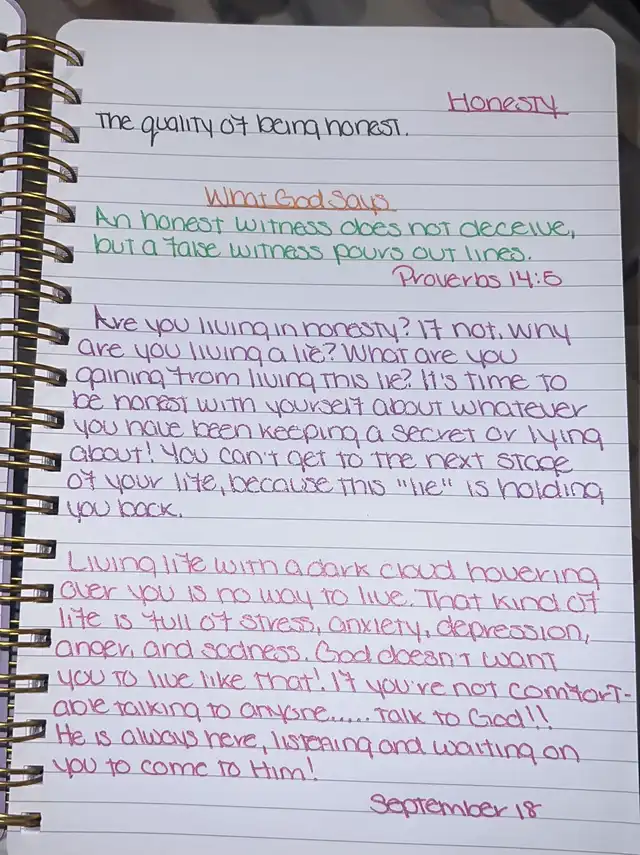 Honesty
The quality of being honest.
What God Says
An honest witness does not deceive,
but a false witness pours out lines.
Proverbs 14:5
Are you living in honesty? If not, why
are you living a lie? What are you
gaining from living this lie? It's time to
be honest with yourself about whatever
you have been keeping a secret or lying
about! You can't get to the next stage
of your life, because this "lie" is holding
you back.
Living life with a dark cloud hovering
over you is no way to live. That kind of
life is full of stress, anxiety, depression,
anger, and sadness. God doesn't want
you to live like that! If you're not comfort-
able talking to anyone..... Talk to God!!
He is always here, listening and waiting on
you to come to Him!
September 18